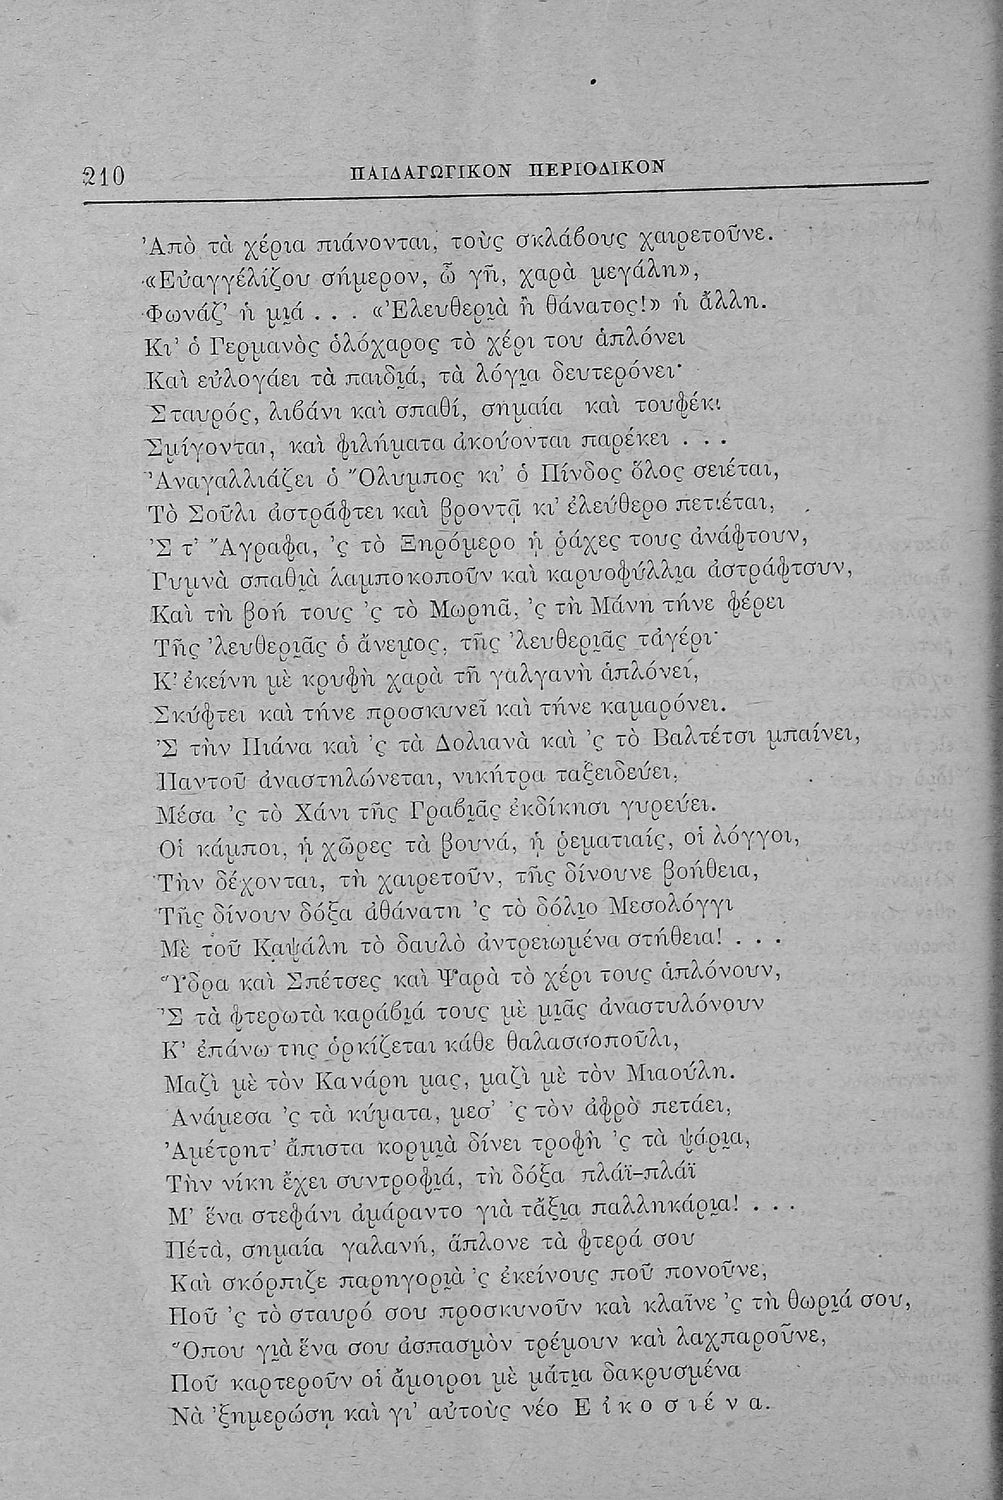 210 ΠΑΙΔΑΓΩΓΙΚΟΝ ΠΕΡΙΟΔΙΚΟΝ
Ἀπὸ τὰ χέρια πιάνονται, τοὺς σκλάβους χαιρετοῦνε.
«Εὐαγγέλίζου σήμερον, ὦ γῆ, χαρὰ μεγάλη»,
Φωνάζ' ἡ μιά . . . «Ἐλευθεριὰ ἢ θάνατος!» ἡ ἄλλη.
Κι' ὁ Γερμανὸς ὁλόχαρος τὸ χέρι του ἁπλόνει
Καὶ εὐλογάει τὰ παιδιά, τὰ λόγια δευτερόνει·
Σταυρός, λιβάνι καὶ σπαθί, σημαία καὶ τουφέκι
Σμίγονται, καὶ φιλήματα ἀκούονται παρέκει . . .
Ἀναγαλλιάζει ὁ Ὄλυμπος κι' ὁ Πίνδος ὅλος σειέται,
Τὸ Σοῦλι ἀστράφτει καὶ βροντᾷ κι' ἐλεύθερο πετιέται,
Ἐ τ' Ἄγραφα, 'ς τὸ Ξηρόμερο ᾑ ῥάχες τους ἀνάφτουν,
Γυμνὰ σπαθιὰ λαμποκοποῦν καὶ καρυοφύλλια ἀστράφτουν,
Καὶ τὴ βοή τους 'ς τὸ Μωρηᾶ, 'ς τὴ Μάνη τήνε φέρει
Τῆς 'λευθεριᾶς ὁ ἄνεμος, τῆς 'λευθεριᾶς τἀγέρι·
Κ' ἐκείνη μὲ κρυφὴ χαρὰ τὴ γαλγανὴ ἁπλόνει,
Σκύφτει καὶ τήνε προσκυνεῖ καὶ τήνε καμαρόνει.
'Σ τὴν Πιάνα καὶ 'ς τὰ Δολιανὰ καὶ 'ς τὸ Βαλτέτσι μπαίνει,
Παντοῦ ἀναστηλώνεται, νικήτρα ταξειδεύει,
Μέσα 'ς τὸ Χάνι τῆς Γραβιᾶς ἐκδίκησι γυρεύει.
Οἱ κάμποι, ᾑ χῶρες τὰ βουνά, ᾑ ῥεματιαίς, οἱ λόγγοι,
Τὴν δέχονται, τὴ χαιρετοῦν, τῆς δίνουνε βοήθεια,
Τῆς δίνουν δόξα ἀθάνατη 'ς τὸ δόλιο Μεσολόγγι
Μὲ τοῦ Καψάλη τὸ δαυλὸ ἀντρειωμένα στήθεια! . . .
Ὕδρα καὶ Σπέτσες καὶ Ψαρὰ τὸ χέρι τους ἁπλόνουν,
'Σ τὰ φτερωτὰ καράβιά τους μὲ μιᾶς ἀναστυλόνουν
Κ' ἐπάνω της ὁρκίζεται κάθε θαλασσοποῦλι,
Μαζὶ μὲ τὸν Κανάρη μας, μαζὶ μὲ τὸν Μιαούλη.
Ἀνάμεσα 'ς τὰ κύματα, μεσ' 'ς τὸν ἀφρὸ πετάει,
Ἀμέτρητ' ἄπιστα κορμιὰ δίνει τροφὴ 'ς τὰ ψάρια,
Τὴν νίκη ἔχει συντροφιά, τὴ δόξα πλάϊ-πλάϊ
Μ' ἕνα στεφάνι ἀμάραντο γιὰ τἄξια παλληκάρια! . . .
Πέτα, σημαία γαλανή, ἅπλονε τὰ φτερά σου
Καὶ σκόρπιζε παρηγοριὰ 'ς ἐκείνους ποῦ πονοῦνε,
Ποῦ 'ς τὸ σταυρό σου προσκυνοῦν καὶ κλαῖνε 'ς τὴ θωριά σου,
Ὅπου γιὰ ἕνα σου ἀσπασμὸν τρέμουν καὶ λαχταροῦνε,
Ποῦ καρτεροῦν οἱ ἄμοιροι μὲ μάτια δακρυσμένα
Νὰ 'ξημερώσῃ καὶ γι' αὐτοὺς νέο Εἰκοσιένα.